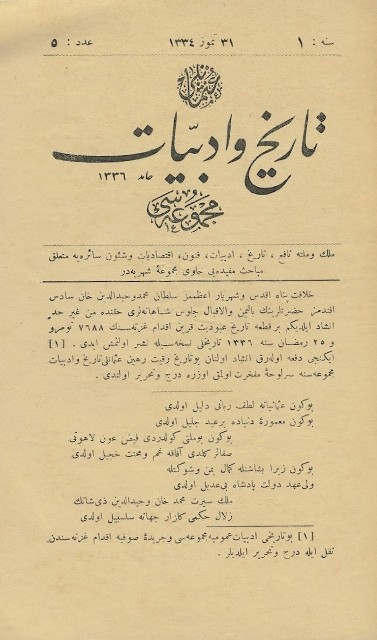 سنه : ١
٣١ تموز ١٣٣٤
عدد : ٥
عثمانلى
تاريخ و ادبيات
حامد ١٣٣٦
مجموعه‌سى
ملك و ملته نافع ، تاريخ ، ادبيات ، فنون ، اقتصاديات و شئون سائره‌يه متعلق
مباحث مفيده‌يى حاوى مجموعهٔ شهريه‌در
خلافت پناه اقدس و شهريار اعظممز سلطان محمد وحيدالدين خان سادس
افندمز حضرتلرينك باليمن والاقبال جلوس شاهانه‌لرى حقنده من غير حد
انشاد ايلديكم بر قطعه تاريخ عبوديت قرين اقدام غزته‌سنك ٧٦٨٨ نومرو
و ٢٥ رمضان سنه ١٣٣٦ تاريخلى نسخه‌سيله نشر اولنمش ايدى . [١]
ايكنجى دفعه اوله‌رق انشاد اولنان بو تاريخ رقيت رهين عثمانلى تاريخ و ادبيات
مجموعه‌سنه سرلوحهٔ مفخرت اولق اوزره درج و تحرير اولندى .
بوكون عثمانيانه لطف ربانى دليل اولدى
بوكون معمورهٔ دنياده بر عيد جليل اولدى
بوكون بوملتى كولدردى فيض عون لاهوتى
صفالر كلدى آفاقه غم ومحنت خجيل اولدى
بوكون زيرا بشاشتله كمال يمن وشوكتله
ولى عهد دولت پادشاه بى‌عديل اولدى
ملك سيرت محمد خان وحيدالدين ذى‌شانك
زلال حكمى كلزار جهانه سلسبيل اولدى
[١] بو تاريخى ادبيات عموميه مجموعه‌سى و جريدهٔ صوفيه اقدام غزته‌سندن
نقل ايله درج و تحرير ايلديلر .